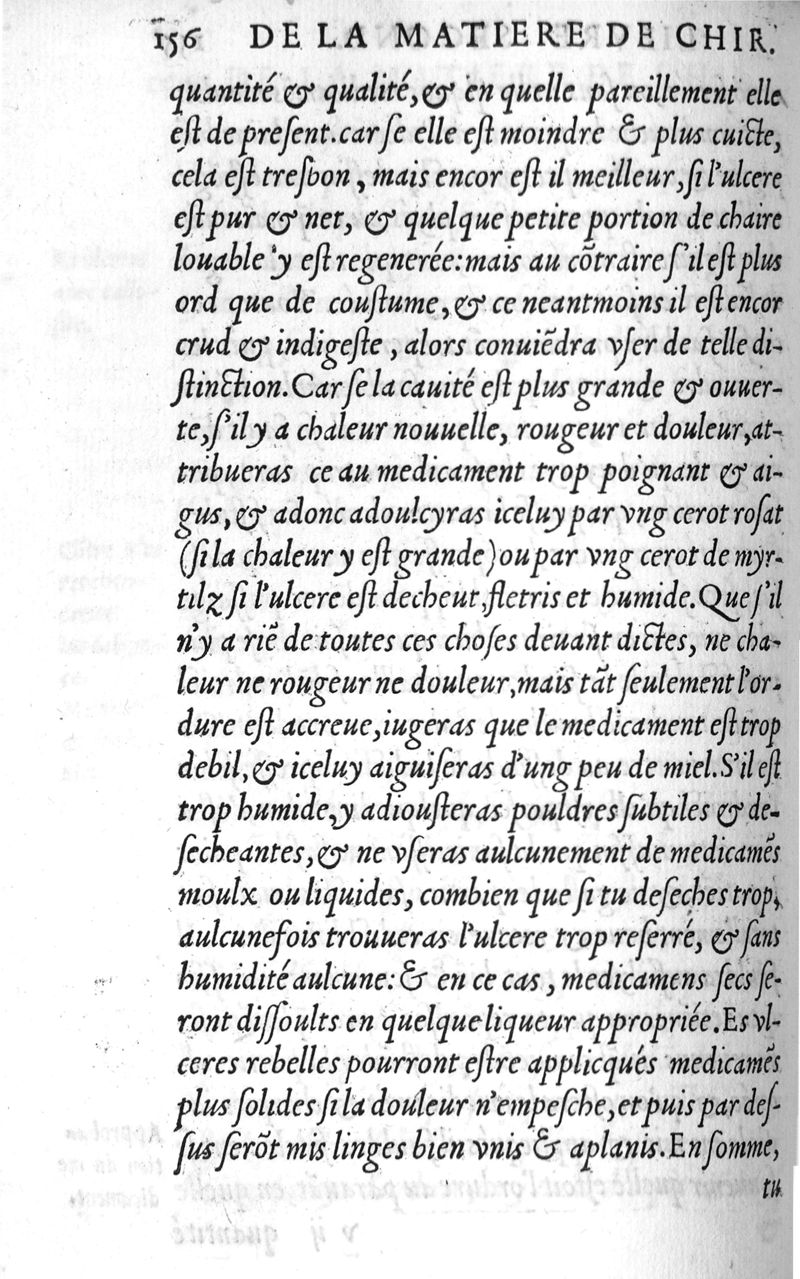 156 DE LA MATIERE DE CHIR.
quantité & qualité, & en quelle pareillement elle
eſt de preſent. car ſe elle eſt moindre & plus cuicte,
cela eſt treſbon, mais encor eſt il meilleur, ſi l'ulcere
eſt pur & net, & quelque petite portion de chaire
louable y eſt regenerée: mais au cõtraire ſ'il eſt plus
ord que de couſtume, & ce neantmoins il eſt encor
crud & indigeſte, alors conuiẽdra vſer de telle di-
ſtinction. Car ſe la cauité eſt plus grande & ouuer-
te, ſ'il y a chaleur nouuelle, rougeur et douleur, at-
tribueras ce au medicament trop poignant & ai-
gus, & adonc adoulcyras iceluy par vng cerot roſat
(ſi la chaleur y eſt grande) ou par vng cerot de myr-
tilz ſi l'ulcere eſt decheut, fletris et humide. Que ſ'il
n'y a riẽ de toutes ces choſes deuant dictes, ne cha-
leur ne rougeur ne douleur, mais tãt ſeulement l'or-
dure eſt accreue, iugeras que le medicament eſt trop
debil, & iceluy aiguiſeras d'ung peu de miel. S'il eſt
trop humide, y adiouſteras pouldres ſubtiles & de-
ſecheantes, & ne vſeras aulcunement de medicamẽs
moulx ou liquides, combien que ſi tu deſeches trop,
aulcunefois trouueras l'ulcere trop reſerré, & ſans
humidité aulcune: & en ce cas, medicamens ſecs ſe-
ront diſſoults en quelque liqueur appropriée. Es vl-
ceres rebelles pourront eſtre applicqués medicamẽs
plus ſolides ſi la douleur n'empeſche, et puis par deſ-
ſus ſerõt mis linges bien vnis & aplanis. En ſomme,
tu